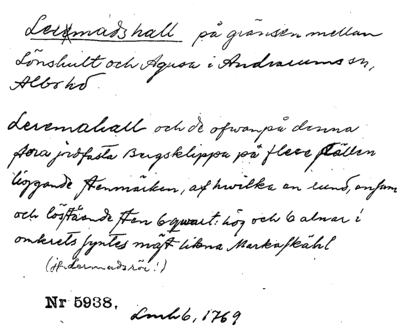 Leremads hall på gränsen mellan
Lönshult och Agusa i Andrarums sn,
Albo hd.
Leremahall och de ofwanpå denna
stora jordfasta Bergsklippa på flere ställen
liggande stenmärken, af hwilka en rund,
och löstående sten 6 qwart: hög och 6 alnar i
omkrets syntes mäst likna Markaskähl
(jf. Lermadsrör!)
Nr 5938,
1769